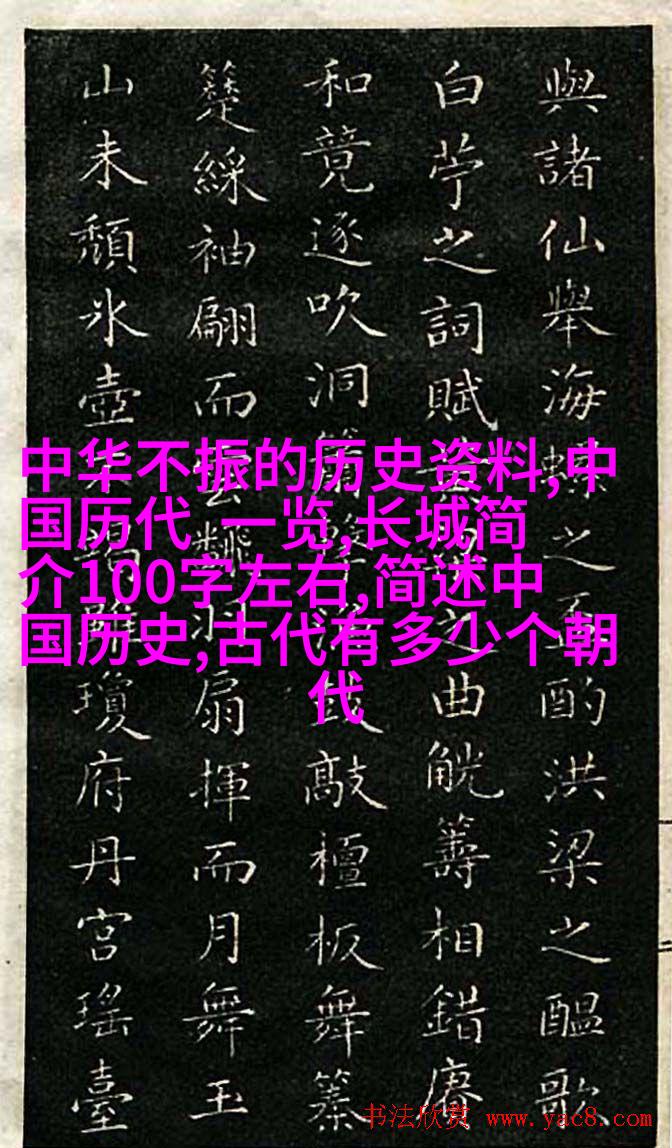 與諸仙舉海螺之酌洪梁之醞歌
白苧之詞賦之曲觥籌相錯賡
和竟逐吹洞簫敲檀板舞
綵袖翩而雲飜羽扇揮而月舞玉
山未頹氷壺雖瓊府丹宮瑤臺
中华不振的历史资料,中
国历代 一览,长城简
介100字左右,简述中
国历史,古代有多少个朝
代
书法欣赏 www.yac8.com